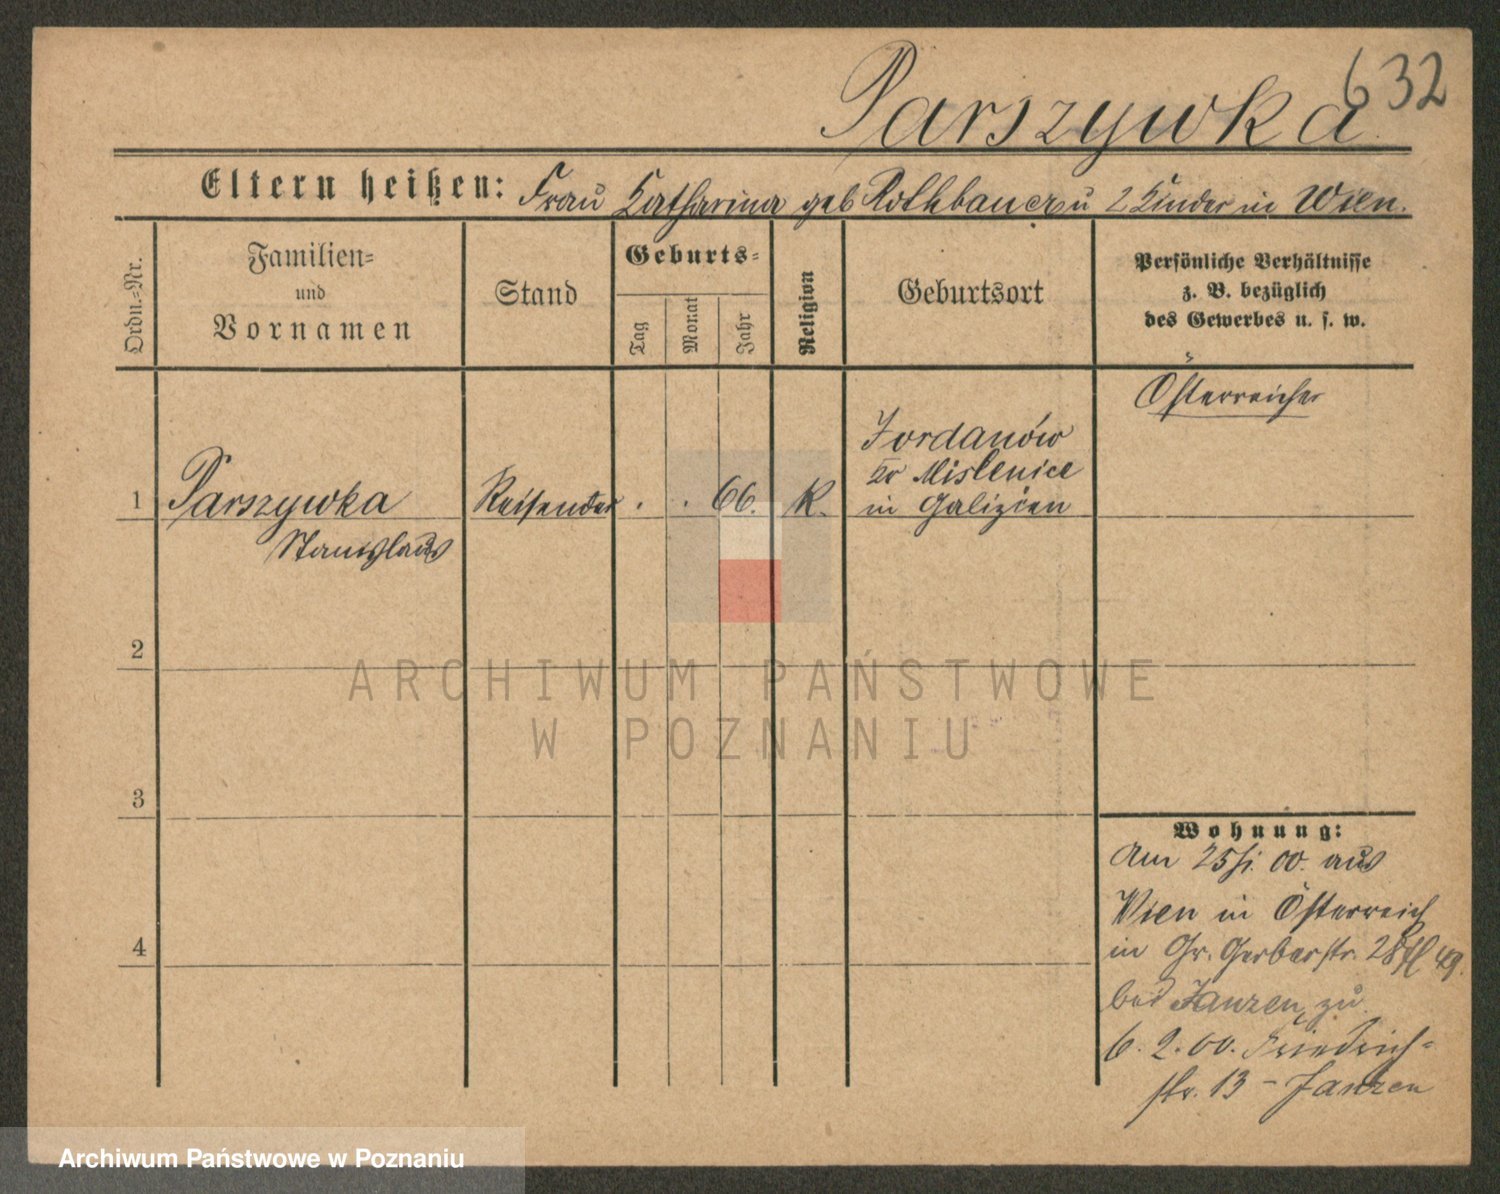 632
Parszywka
Eltern heißen: Frau Katharina geb Rothbauer u 2 Kinder in Wien.
Ordn.=Nr.
Familien=
und
Vornamen
Stand
Geburts=
Tag
Monat
Jahr
Religion
Geburtsort
Persönliche Verhältnisse
z. B. bezüglich
des Gewerbes u. s. w.
Österreicher
1
Parszywka
Stanislaus
Reisender
. . 66.
K.
Jordanów
Kr Mislenice
in Galizien
2
3
4
Wohnung:
Am 25/1. 00. aus
Wien in Österreich
in Gr. Gerberstr. 28
bei Janzen, zu
6. 2. 00. Friedrich=
str. 13 – Janzen
ARCHIWUM PAŃSTWOWE
W POZNANIU
Archiwum Państwowe w Poznaniu